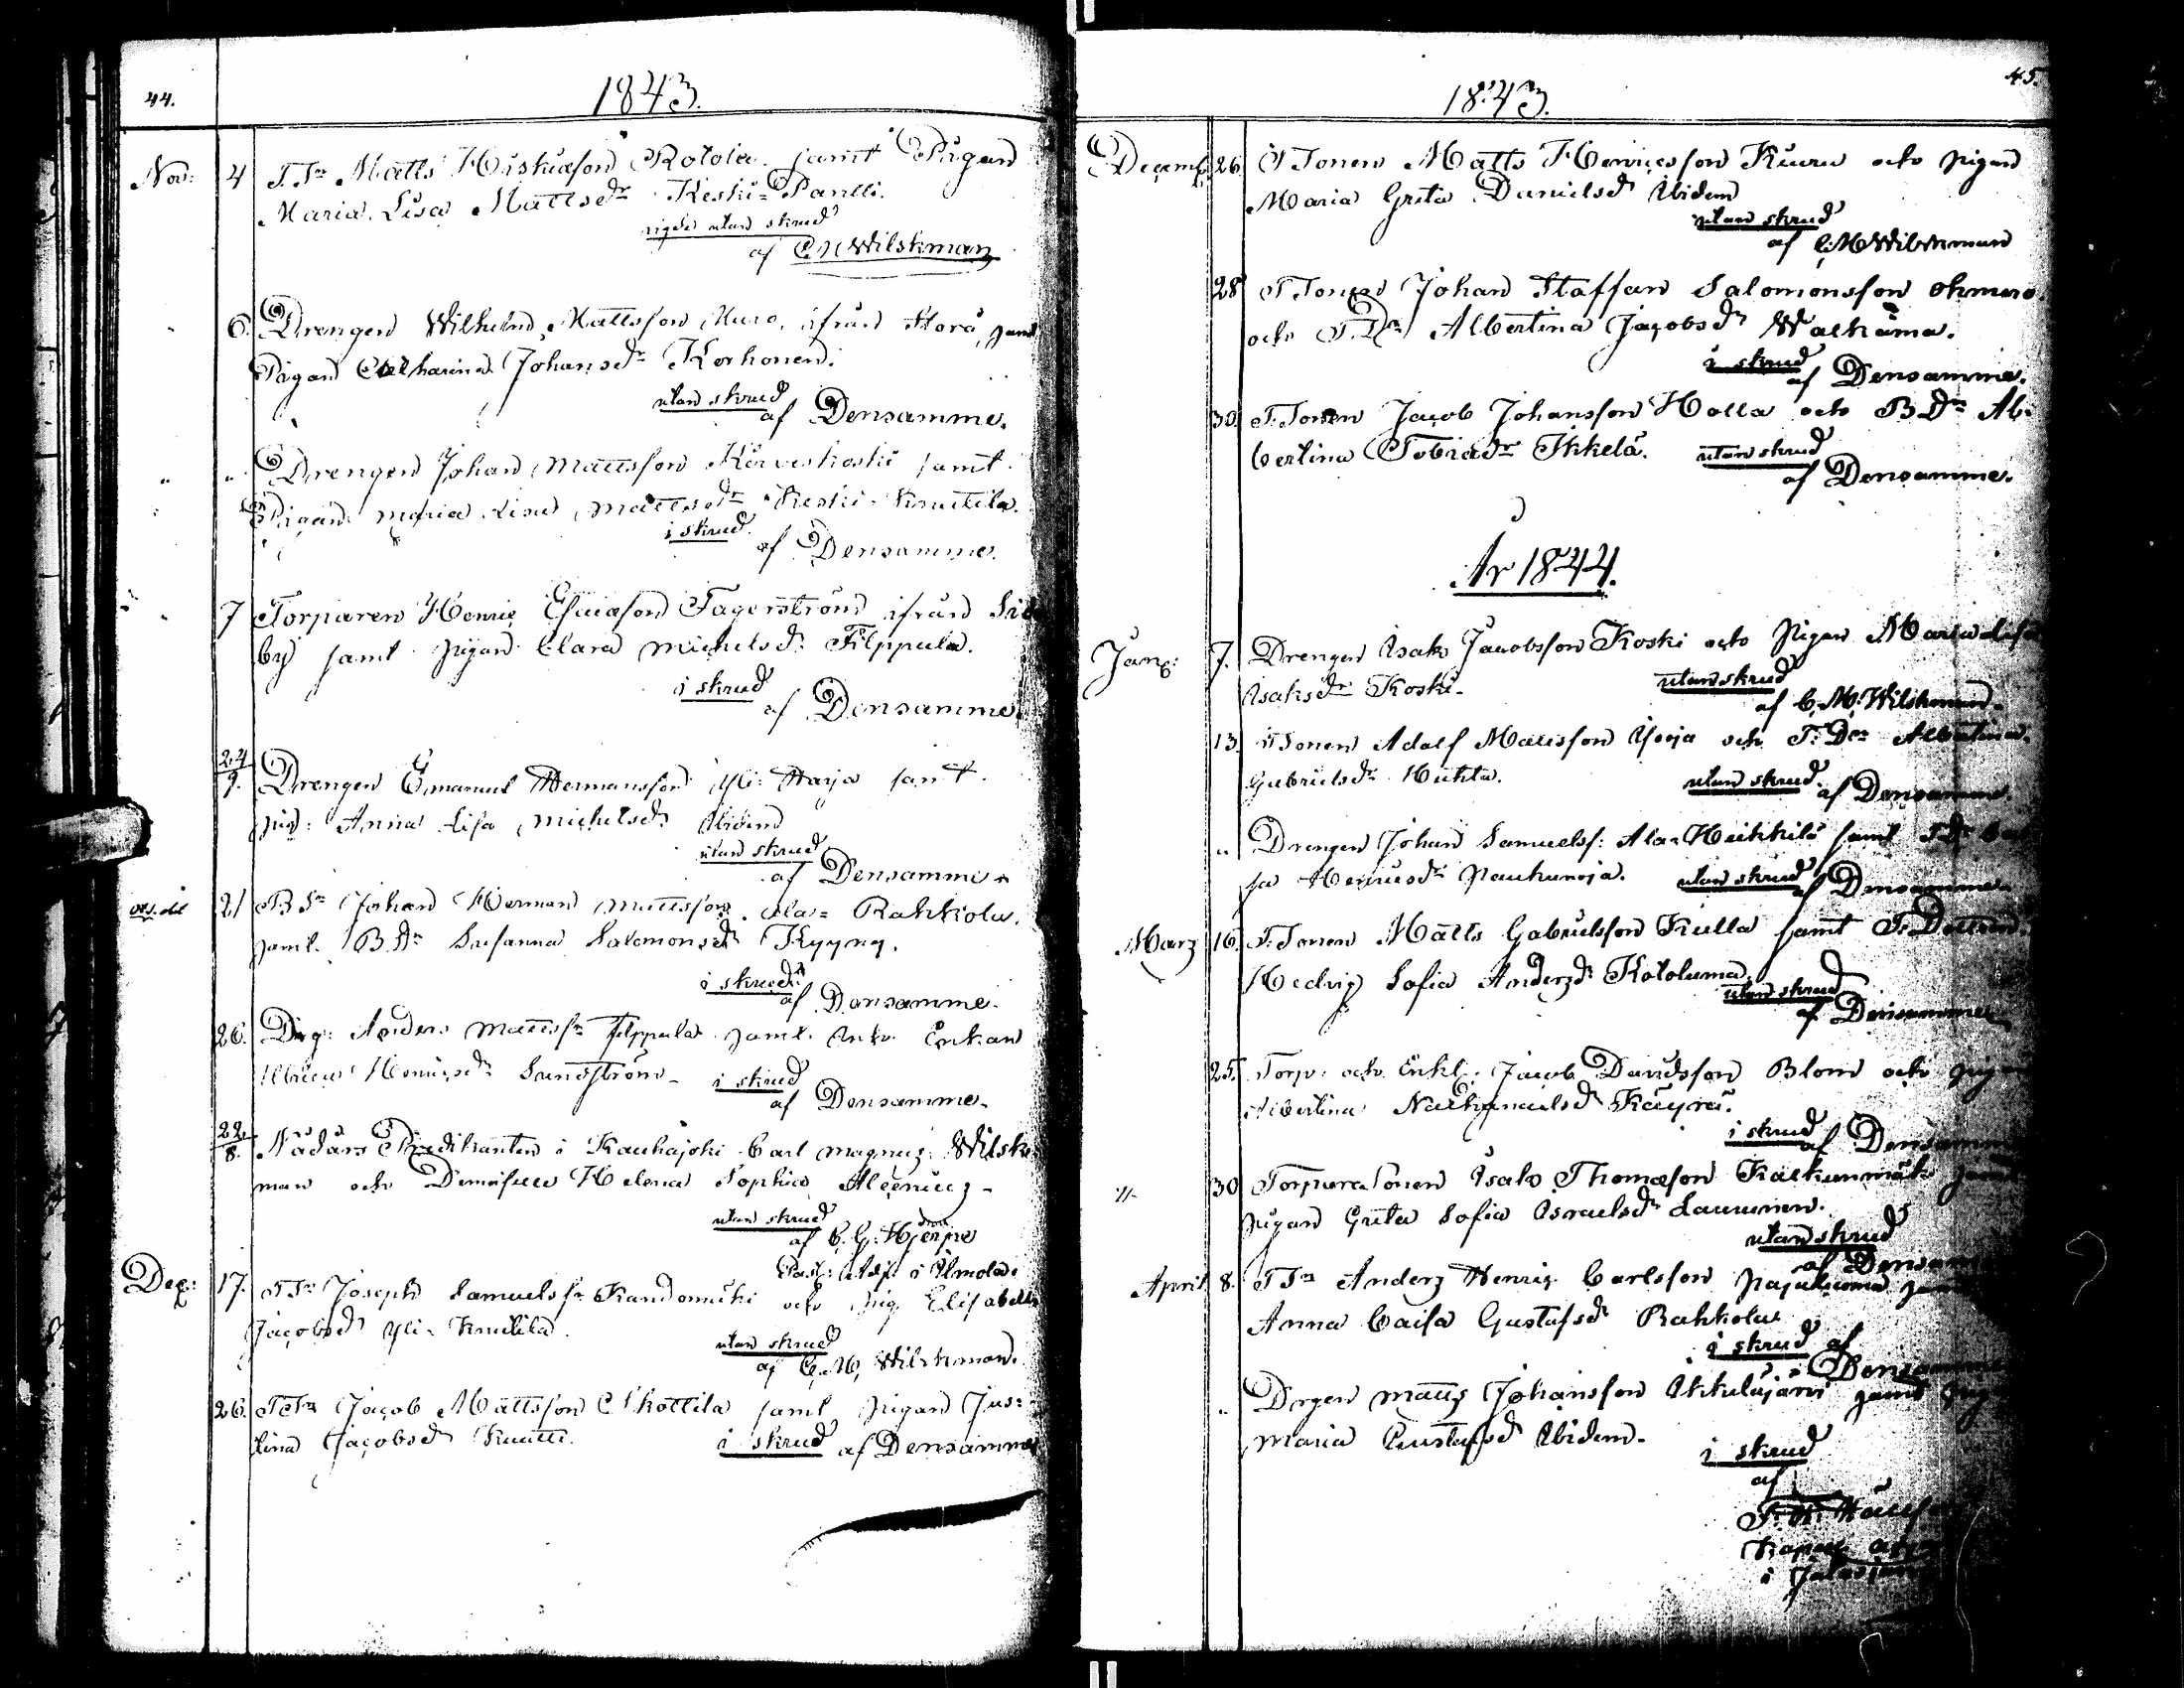 44.
1843.
Nov: 4 T.Sn Matts Hiskiæson Rotola samt Pigan
Maria Lisa Mattsdr Keski-Pantti.
vigde utan skrud
af C M Wilskman
6. Drengen Wilhelm Mattsson Muro, ifrån Storå, samt
Pigan Catharina Johansdr Korhonen.
utan skrud
af Densamme.
" " Drengen Johan Mattsson Kärvikoski samt
Pigan Maria Lisa Mattsdr Keski-Knuttila.
i skrud.
af Densamme.
" 7 Torparen Henric Esaiæson Fagerström ifrån Side
by samt pigan Clara Michelsdr Filppula.
i skrud
af Densamme.
24/9. Drengen Emanuel Hermansson Yli-Harja samt
pig: Anna Lisa Michelsdr Ibidem
utan skrud
af Densamme
21 B Sn Johan Herman Mattsson Ala-Rahkola.
samt B.Dr Susanna Salomonsdr Kyyny.
i skrud
af Densamme.
26. Drg: Anders Mattssn Filppula samt Inh. Enkan
Henricsdr Sundström- i skrud
af Densamme.
22/8. Nådårs Predikanten i Kauhajoki Carl Magnus Wilsk-
man och Demoiselle Helena Sophia Alcenius-
utan skrud
af C. G. Hjerpe
Past: Adj: i Ilmola.
Dec: 17. T Sn Joseph Samuelssn Kandomäki och pig. Elisabeth
Jacobsdr Yli-Knuttila.
utan skrud
af C. M. Wilskman.
26. T Sn Jacob Mattsson Skottila samt pigan Jus-
tina Jacobsdr Knutti.
i skrud af Densamme
45.
1843.
Decemb. 26. T Sonen Matts Henricsson Kuru och pigan
Maria Greta Danielsdr Ibidem
utan skrud
af C. M Wilskman
28 T Sonen Johan Staffan Salomonsson
och T.Dr Albertina Jacobsdr Walkama.
i skrud
af Densamme.
30. T. Sonen Jacob Johansson Holla och B Dn Al-
bertina Tobiædr Ikkelä. utan skrud
af Densamme.
År 1844.
Janu: 7. Drengen Isak Jacobsson Koski och Pigan Maria Lisa
Isaksdr Koski- utan skrud
af C. M. Wilskman.
13. T Sonen Adolf Mattsson Ysoja och T: Dn Albertina
Gabrielsdr Huhta. utan skrud.
af Densamme.
" Drengen Johan Samuelss: Ala-Heikkilä samt T Dr Cai
sa Henricsdr Pauhunoja. utan skrud
af Densamme.
Marz 16. T. Sonen Matts Gabrielsson Kulla samt T. Dottren
Hedvig Sofia Andersdr Kotoluma.
utan skrud
af Densamme
25. Torp: och Enkl: Jacob Davidsson Blom och pig
Albertina Nathanaelsdr Käyrä.
i skrud
af Densamme
-"- 30 Torparesonen Isak Thomæson Kalkunmäki samt
pigan Greta Sofia Israelsdr Laurinen.
utan skrud
af Densam
April 8. T Sn Anders Henric Carlsson Pajuluoma samt
Anna Caisa Gustafsdr Rahkola
i skrud af
Densamme
" Drgen Matts Johansson Ikkeläjärvi samt pig
Maria Gustafsdr Ibidem.
i skrud
af
i Jalasjärvi